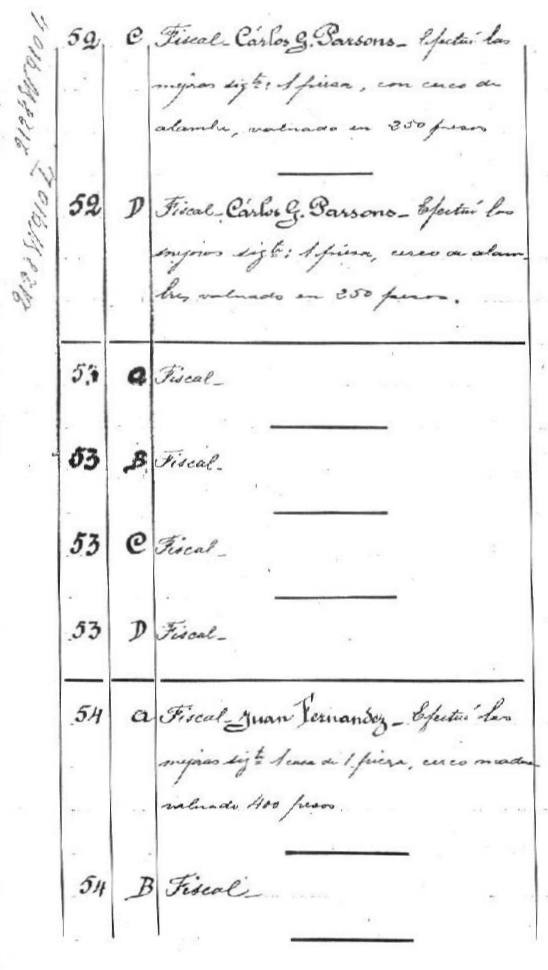 52 C Fiscal - Cárlos G. Parsons - Efectuó las
mejoras sigts: 1 pieza, con cerco de
alambre, valuado en 250 pesos
52 D Fiscal - Cárlos G. Parsons - Efectuó las
mejoras sigts: 1 pieza, cerco de alam-
bre, valuado en 250 pesos.
53 a Fiscal -
53 B Fiscal -
53 C Fiscal -
53 D Fiscal -
54 a Fiscal - Juan Fernandez - Efectuó las
mejoras sigts 1 casa de 1 pieza, cerco madera
valuado 400 pesos.
54 B Fiscal -